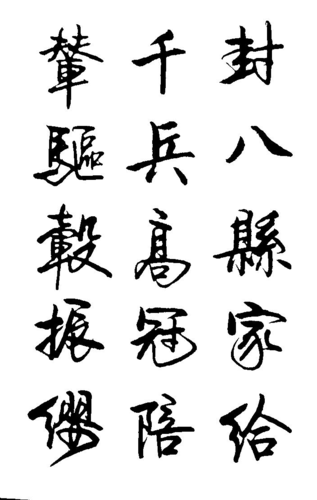 封八縣家給
千兵高冠陪
輦驅轂振纓